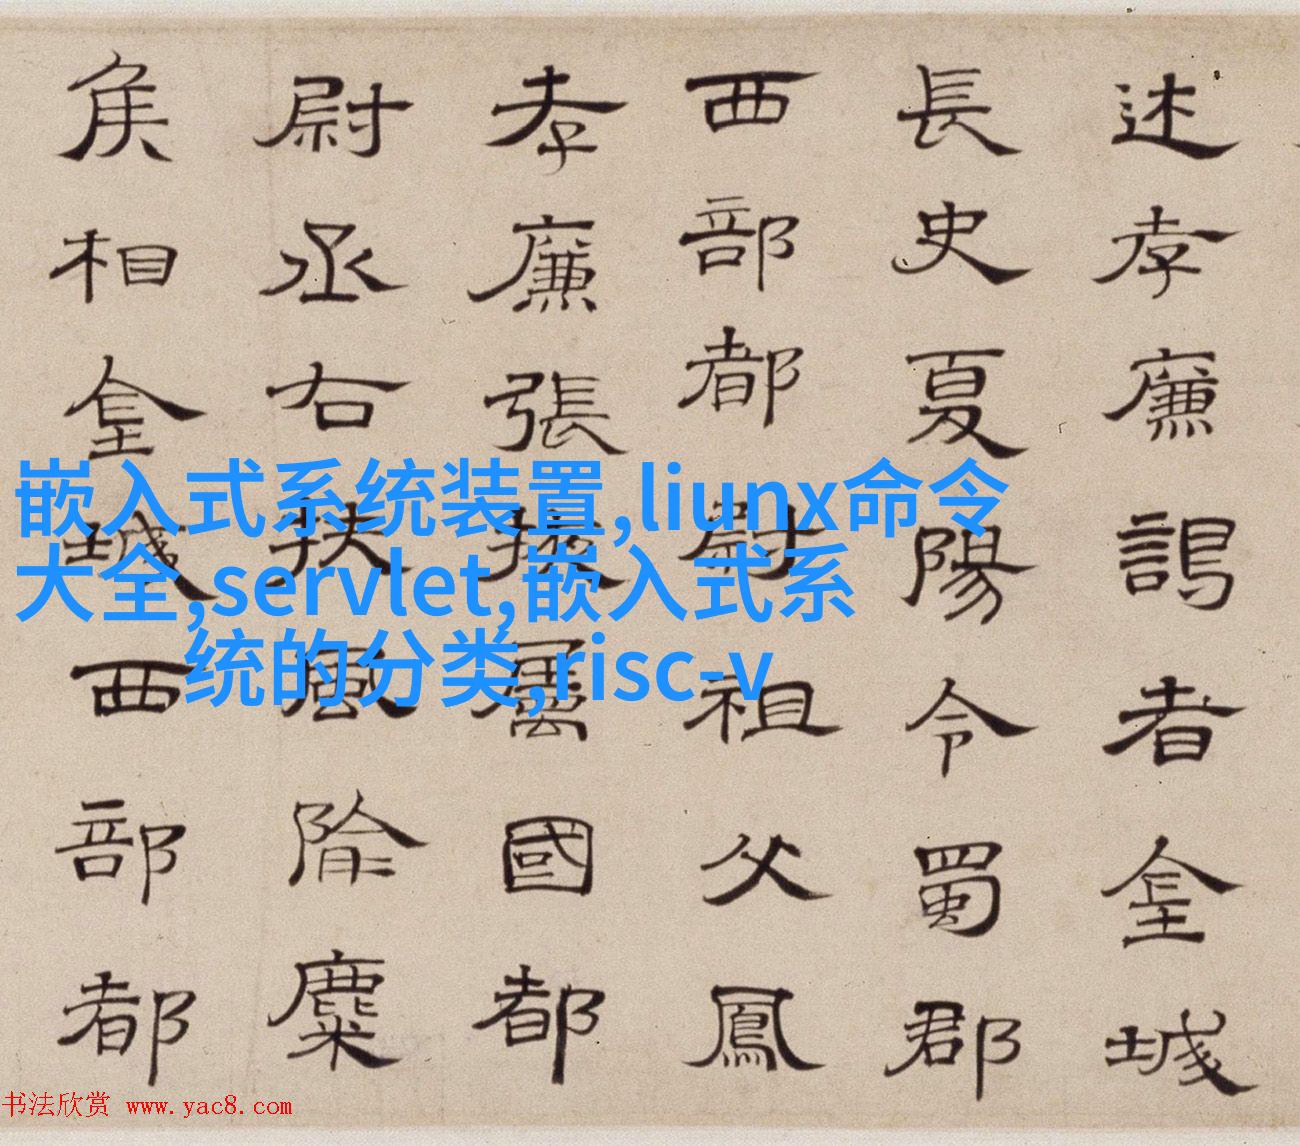 述孝廉謁者金城
長史夏陽令蜀郡
西部都尉祖父鳳
孝廉張掖屬國都
尉丞右扶風隃麋
侯相金城西部都
嵌入式系统装置,liunx命令
大全,servlet,嵌入式系
统的分类,risc-v
书法欣赏 www.yac8.com